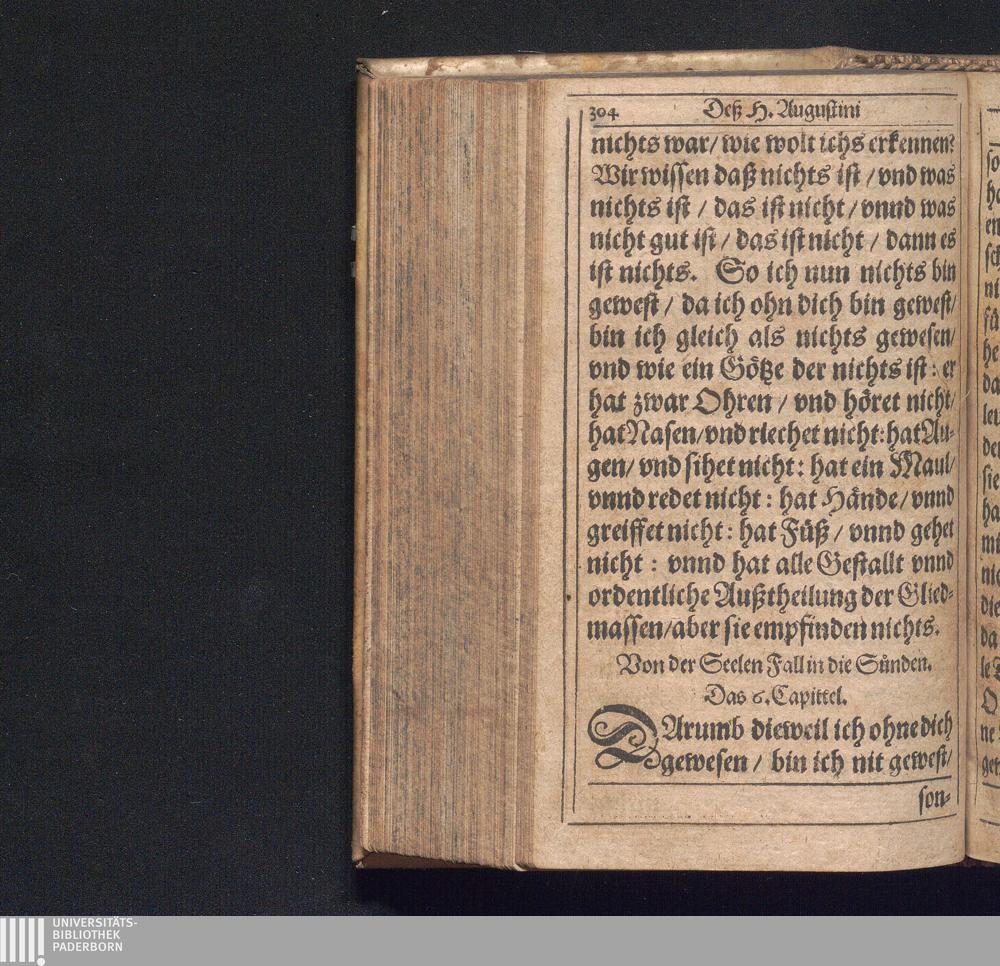 304 Deß H. Augustini
nichts war/ wie wolt ichs erkennen?
Wir wissen daß nichts ist / vnd was
nichts ist / das ist nicht / vnnd was
nicht gut ist / das ist nicht / dann es
ist nichts. So ich nun nichts bin
gewest / da ich ohn dich bin gewest/
bin ich gleich als nichts gewesen/
vnd wie ein Götze der nichts ist: er
hat zwar Ohren / vnd höret nicht/
hat Nasen/ vnd riechet nicht: hat Au-
gen/ vnd sihet nicht: hat ein Maul/
vnnd redet nicht: hat Hände/ vnnd
greiffet nicht: hat Füß / vnnd gehet
nicht: vnnd hat alle Gestallt vnnd
ordentliche Außtheilung der Glied-
massen/ aber sie empfinden nichts.
Von der Seelen Fall in die Sünden.
Das 6. Capittel.
DArumb dieweil ich ohne dich
gewesen / bin ich nit gewest/
son-
UNIVERSITÄTS-
BIBLIOTHEK
PADERBORN